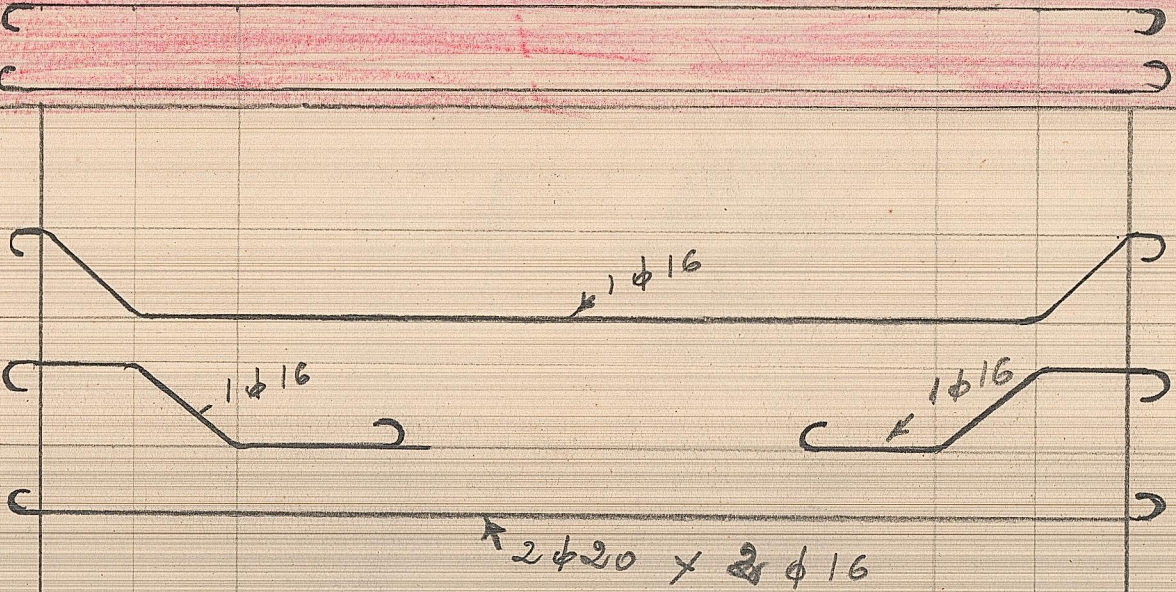 1 ϕ 16
1 ϕ 16
1 ϕ 16
2 ϕ 20 y 2 ϕ 16